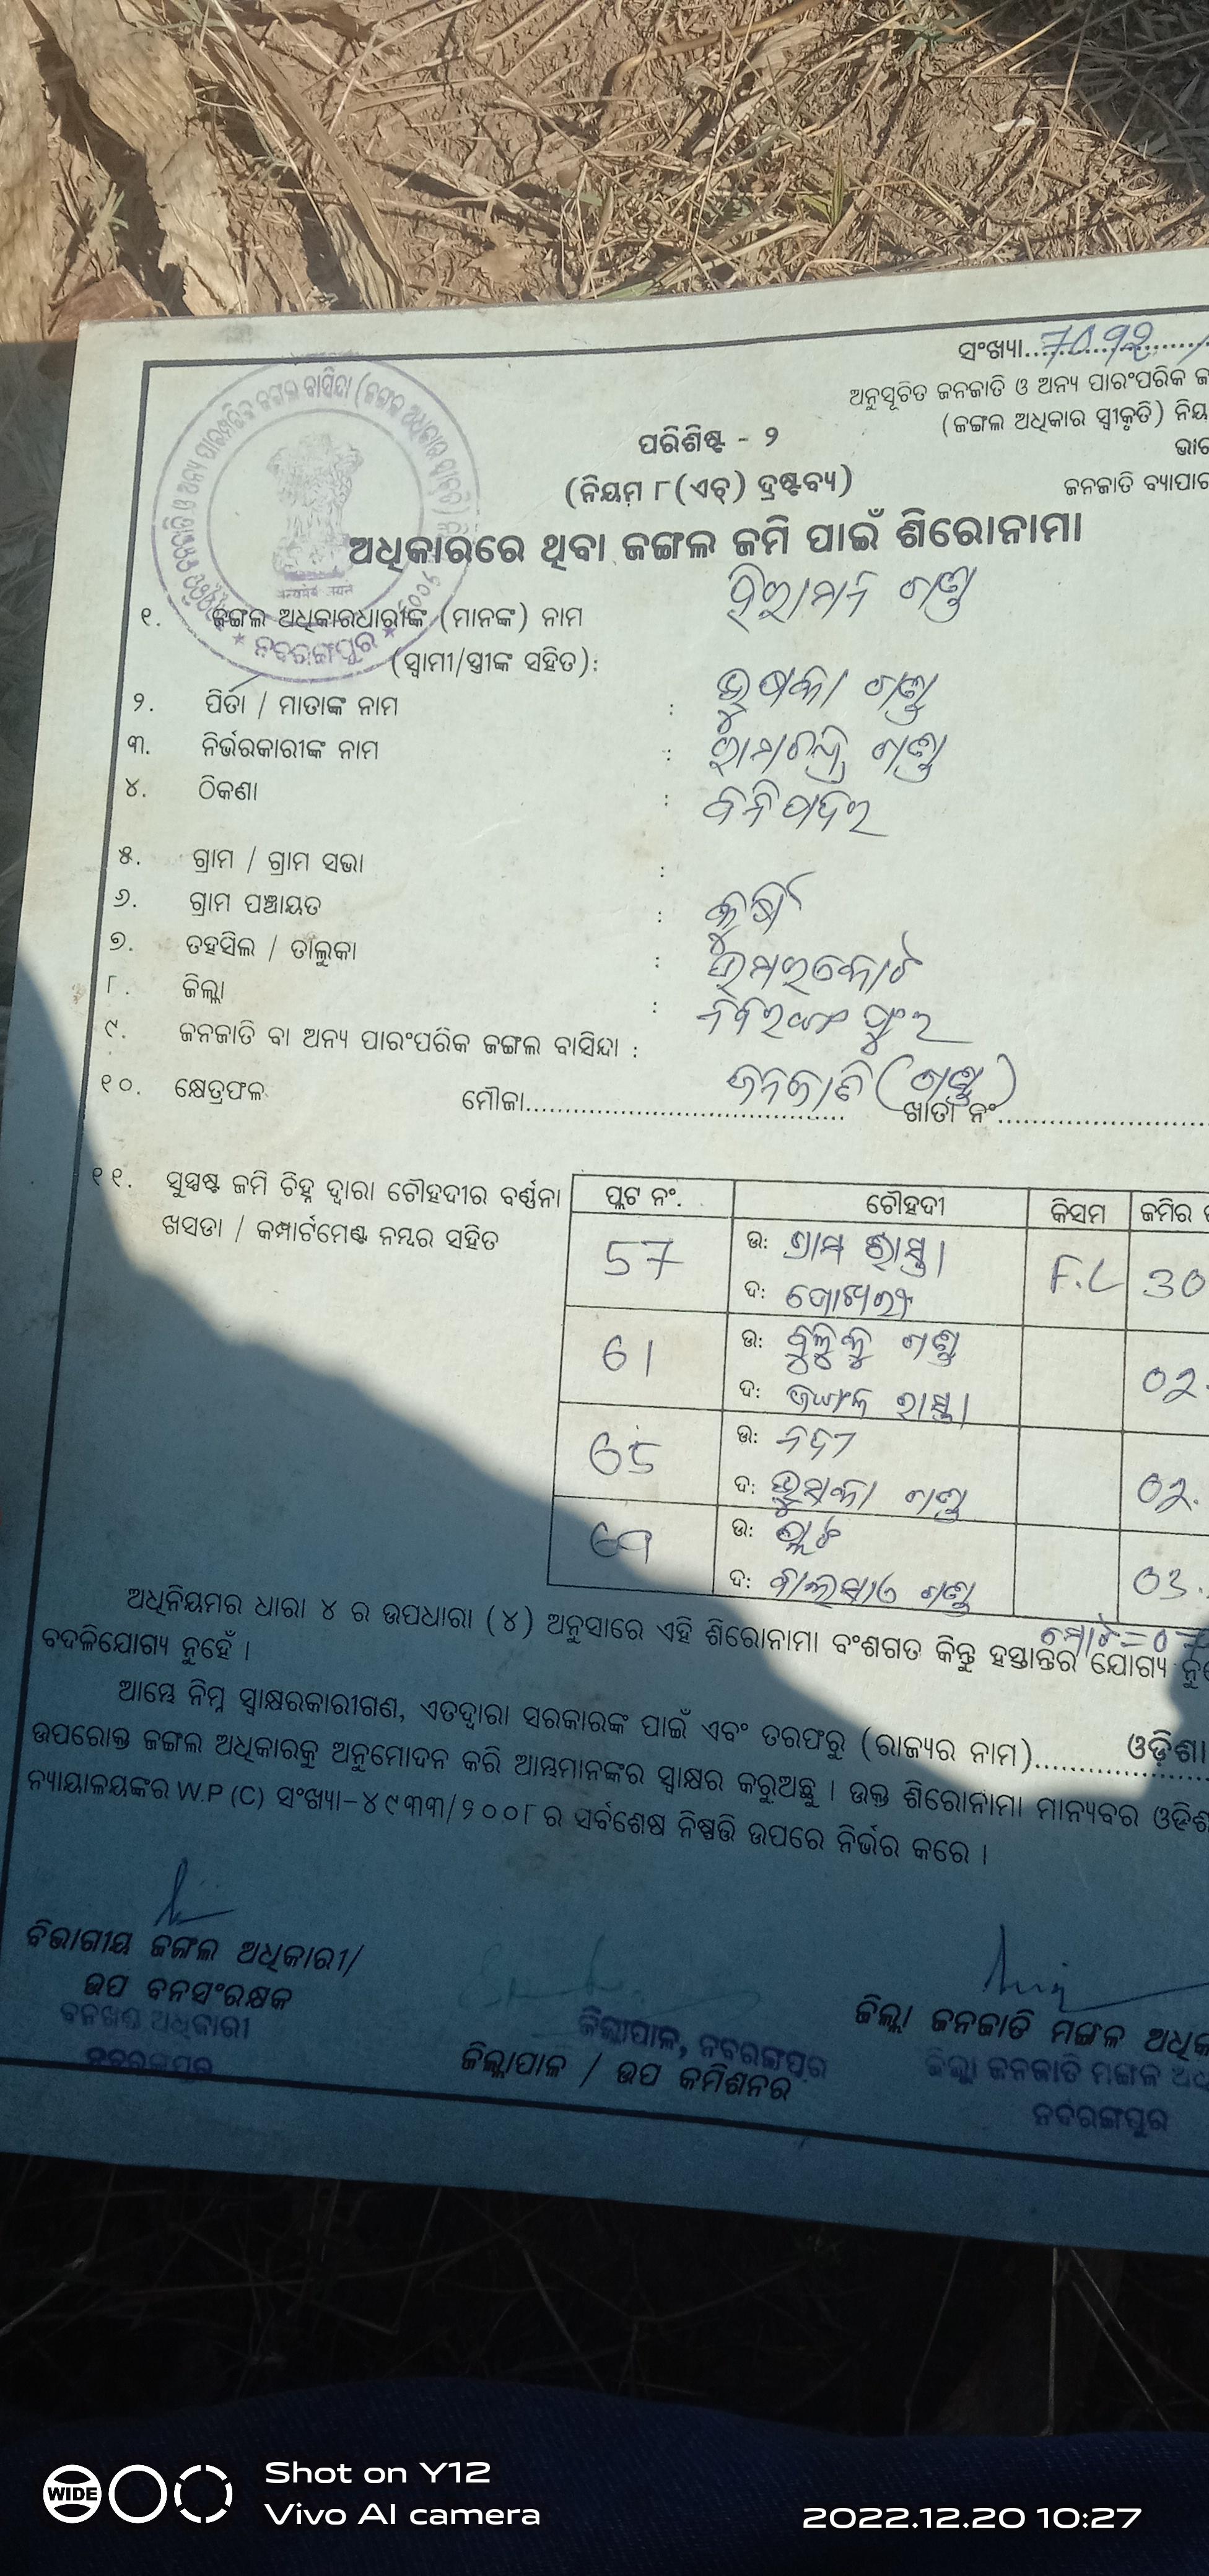 ସଂଖ୍ୟା
ଅନୁସୂଚିତ ଜନଜାତି ଓ ଅନ୍ୟ ପାରଂପରିକ
(ଜଙ୍ଗଲ ଅଧିକାର ସ୍ୱୀକୃତି)
ପରିଶିଷ୍ଟ - ୨
(ନିୟମ ୮(ଏଚ୍) ଦ୍ରଷ୍ଟବ୍ୟ)
ଜନଜାତି
ଅଧିକାରରେ ଥିବା ଜଙ୍ଗଲ ଜମି ପାଇଁ ଶିରୋନାମା
୧. ଜଙ୍ଗଲ ଅଧିକାରଧାରୀଙ୍କ (ମାନଙ୍କ) ନାମ ହିରାମନ ଗଣ୍ଡ
(ସ୍ୱାମୀ/ସ୍ତ୍ରୀଙ୍କ ସହିତ):
୨. ପିତା / ମାତାଙ୍କ ନାମ : ଗଣ୍ଡ
୩. ନିର୍ଭରକାରୀଙ୍କ ନାମ : ଗଣ୍ଡ
୪. ଠିକଣା :
୫. ଗ୍ରାମ / ଗ୍ରାମ ସଭା :
୬. ଗ୍ରାମ ପଞ୍ଚାୟତ :
୭. ତହସିଲ / ତାଲୁକା : ଉମରକୋଟ
୮. ଜିଲ୍ଲା : ନବରଙ୍ଗପୁର
୯. ଜନଜାତି ବା ଅନ୍ୟ ପାରଂପରିକ ଜଙ୍ଗଲ ବାସିନ୍ଦା : ଜନଜାତି (ଗଣ୍ଡ)
୧୦. କ୍ଷେତ୍ରଫଳ ମୌଜା ଖାତା ନଂ
୧୧. ସୁସ୍ପଷ୍ଟ ଜମି ଚିହ୍ନ ଦ୍ୱାରା ଚୌହଦୀର ବର୍ଣ୍ଣନା
ଖସଡା / କମ୍ପାର୍ଟମେଣ୍ଟ ନମ୍ବର ସହିତ
ପ୍ଲଟ ନଂ. ଚୌହଦୀ କିସମ ଜମିର
57 ଉ: ଗ୍ରାମ ରାସ୍ତା F.L 30
ଦ:
61 ଉ: ଗଣ୍ଡ 02.
ଦ: ଜଙ୍ଗଲ ରାସ୍ତା
65 ଉ: ନଦୀ 02.
ଦ: ଗଣ୍ଡ
ଉ: 03.
ଦ: ଗଣ୍ଡ
ମୋଟ=
ଅଧିନିୟମର ଧାରା ୪ ର ଉପଧାରା (୪) ଅନୁସାରେ ଏହି ଶିରୋନାମା ବଂଶଗତ କିନ୍ତୁ ହସ୍ତାନ୍ତର ଯୋଗ୍ୟ
ବଦଳିଯୋଗ୍ୟ ନୁହେଁ ।
ଆମ୍ଭେ ନିମ୍ନ ସ୍ୱାକ୍ଷରକାରୀଗଣ, ଏତଦ୍ୱାରା ସରକାରଙ୍କ ପାଇଁ ଏବଂ ତରଫରୁ (ରାଜ୍ୟର ନାମ) ଓଡ଼ିଶା
ଉପରୋକ୍ତ ଜଙ୍ଗଲ ଅଧିକାରକୁ ଅନୁମୋଦନ କରି ଆମ୍ଭମାନଙ୍କର ସ୍ୱାକ୍ଷର କରୁଅଛୁ । ଉକ୍ତ ଶିରୋନାମା ମାନ୍ୟବର
ନ୍ୟାୟାଳୟଙ୍କର W.P (C) ସଂଖ୍ୟା-୪୯୩୩/୨୦୦୮ ର ସର୍ବଶେଷ ନିଷ୍ପତ୍ତି ଉପରେ ନିର୍ଭର କରେ ।
ବିଭାଗୀୟ ଜଙ୍ଗଲ ଅଧିକାରୀ/
ଉପ ବନସଂରକ୍ଷକ
ବନଖଣ୍ଡ ଅଧିକାରୀ
ନବରଙ୍ଗପୁର
ଜିଲ୍ଲାପାଳ, ନବରଙ୍ଗପୁର
ଜିଲ୍ଲାପାଳ / ଉପ କମିଶନର
ଜିଲ୍ଲା ଜନଜାତି ମଙ୍ଗଳ
ଜିଲ୍ଲା ଜନଜାତି ମଙ୍ଗଳ
ନବରଙ୍ଗପୁର
WIDE
Shot on Y12
Vivo AI camera
2022.12.20 10:27